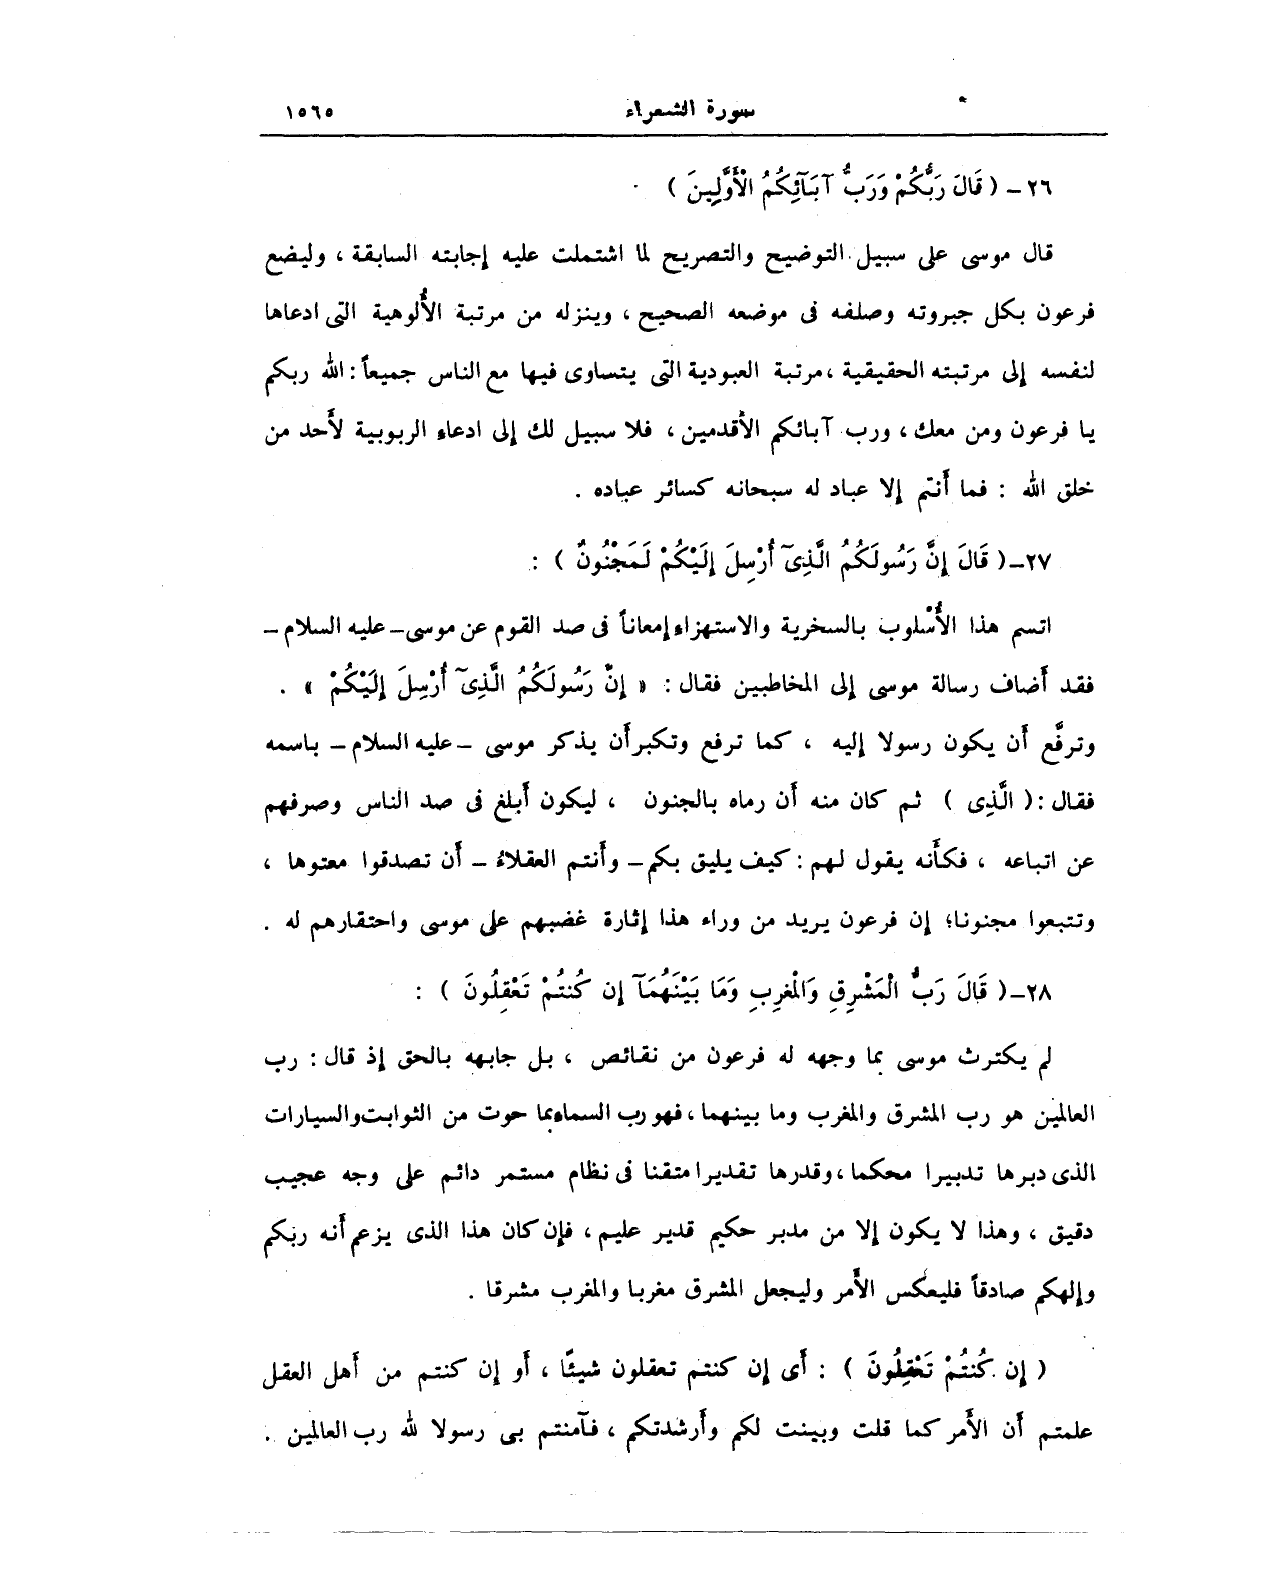 سورة الشعراء ١٥٦٥
٢٦ – ( قَالَ رَبُّكُمْ وَرَبُّ آبَآئِكُمُ الْأَوَّلِينَ )
قال موسى على سبيل التوضيح والتصريح لما اشتملت عليه إجابته السابقة ، وليضع
فرعون بكل جبروته وصلفه فى موضعه الصحيح ، وينزله من مرتبة الأُلوهية التى ادعاها
لنفسه إلى مرتبته الحقيقية ، مرتبة العبودية التى يتساوى فيها مع الناس جميعاً : الله ربكم
يا فرعون ومن معك ، ورب آبائكم الأقدمين ، فلا سبيل لك إلى ادعاء الربوبية لأَحد من
خلق الله : فما أَنتم إلا عباد له سبحانه كسائر عباده .
٢٧ – ( قَالَ إِنَّ رَسُولَكُمُ الَّذِىٓ أُرْسِلَ إِلَيْكُمْ لَمَجْنُونٌ ) :
اتسم هذا الأُسْلوب بالسخرية والاستهزاء إمعاناً فى صد القوم عن موسى – عليه السلام –
فقد أَضاف رسالة موسى إلى المخاطبين فقال : « إِنَّ رَسُولَكُمُ الَّذِىٓ أُرْسِلَ إِلَيْكُمْ » .
وترفَّع أَن يكون رسولا إليه ، كما ترفع وتكبر أَن يذكر موسى – عليه السلام – باسمه
فقال : ( الَّذِى ) ثم كان منه أَن رماه بالجنون ، ليكون أَبلغ فى صد الناس وصرفهم
عن اتباعه ، فكأَنه يقول لهم : كيف يليق بكم – وأَنتم العقلاءُ – أَن تصدقوا معتوها ،
وتتبعوا مجنونا؛ إن فرعون يريد من وراء هذا إثارة غضبهم على موسى واحتقارهم له .
٢٨ – ( قَالَ رَبُّ الْمَشْرِقِ وَالْمَغْرِبِ وَمَا بَيْنَهُمَآ إِن كُنتُمْ تَعْقِلُونَ ) :
لم يكترث موسى بما وجهه له فرعون من نقائص ، بل جابهه بالحق إذ قال : رب
العالمين هو رب المشرق والمغرب وما بينهما ، فهو رب السماء بما حوت من الثوابت والسيارات
الذى دبرها تدبيرا محكما ، وقدرها تقديرا متقنا فى نظام مستمر دائم على وجه عجيب
دقيق ، وهذا لا يكون إلا من مدبر حكيم قدير عليم ، فإن كان هذا الذى يزعم أَنه ربكم
وإلهكم صادقاً فليعكس الأَمر وليجعل المشرق مغربا والمغرب مشرقا .
( إِن كُنتُمْ تَعْقِلُونَ ) : أَى إن كنتم تعقلون شيئًا ، أَو إن كنتم من أَهل العقل
علمتم أَن الأَمر كما قلت وبينت لكم وأَرشدتكم ، فآمنتم بى رسولا لله رب العالمين .